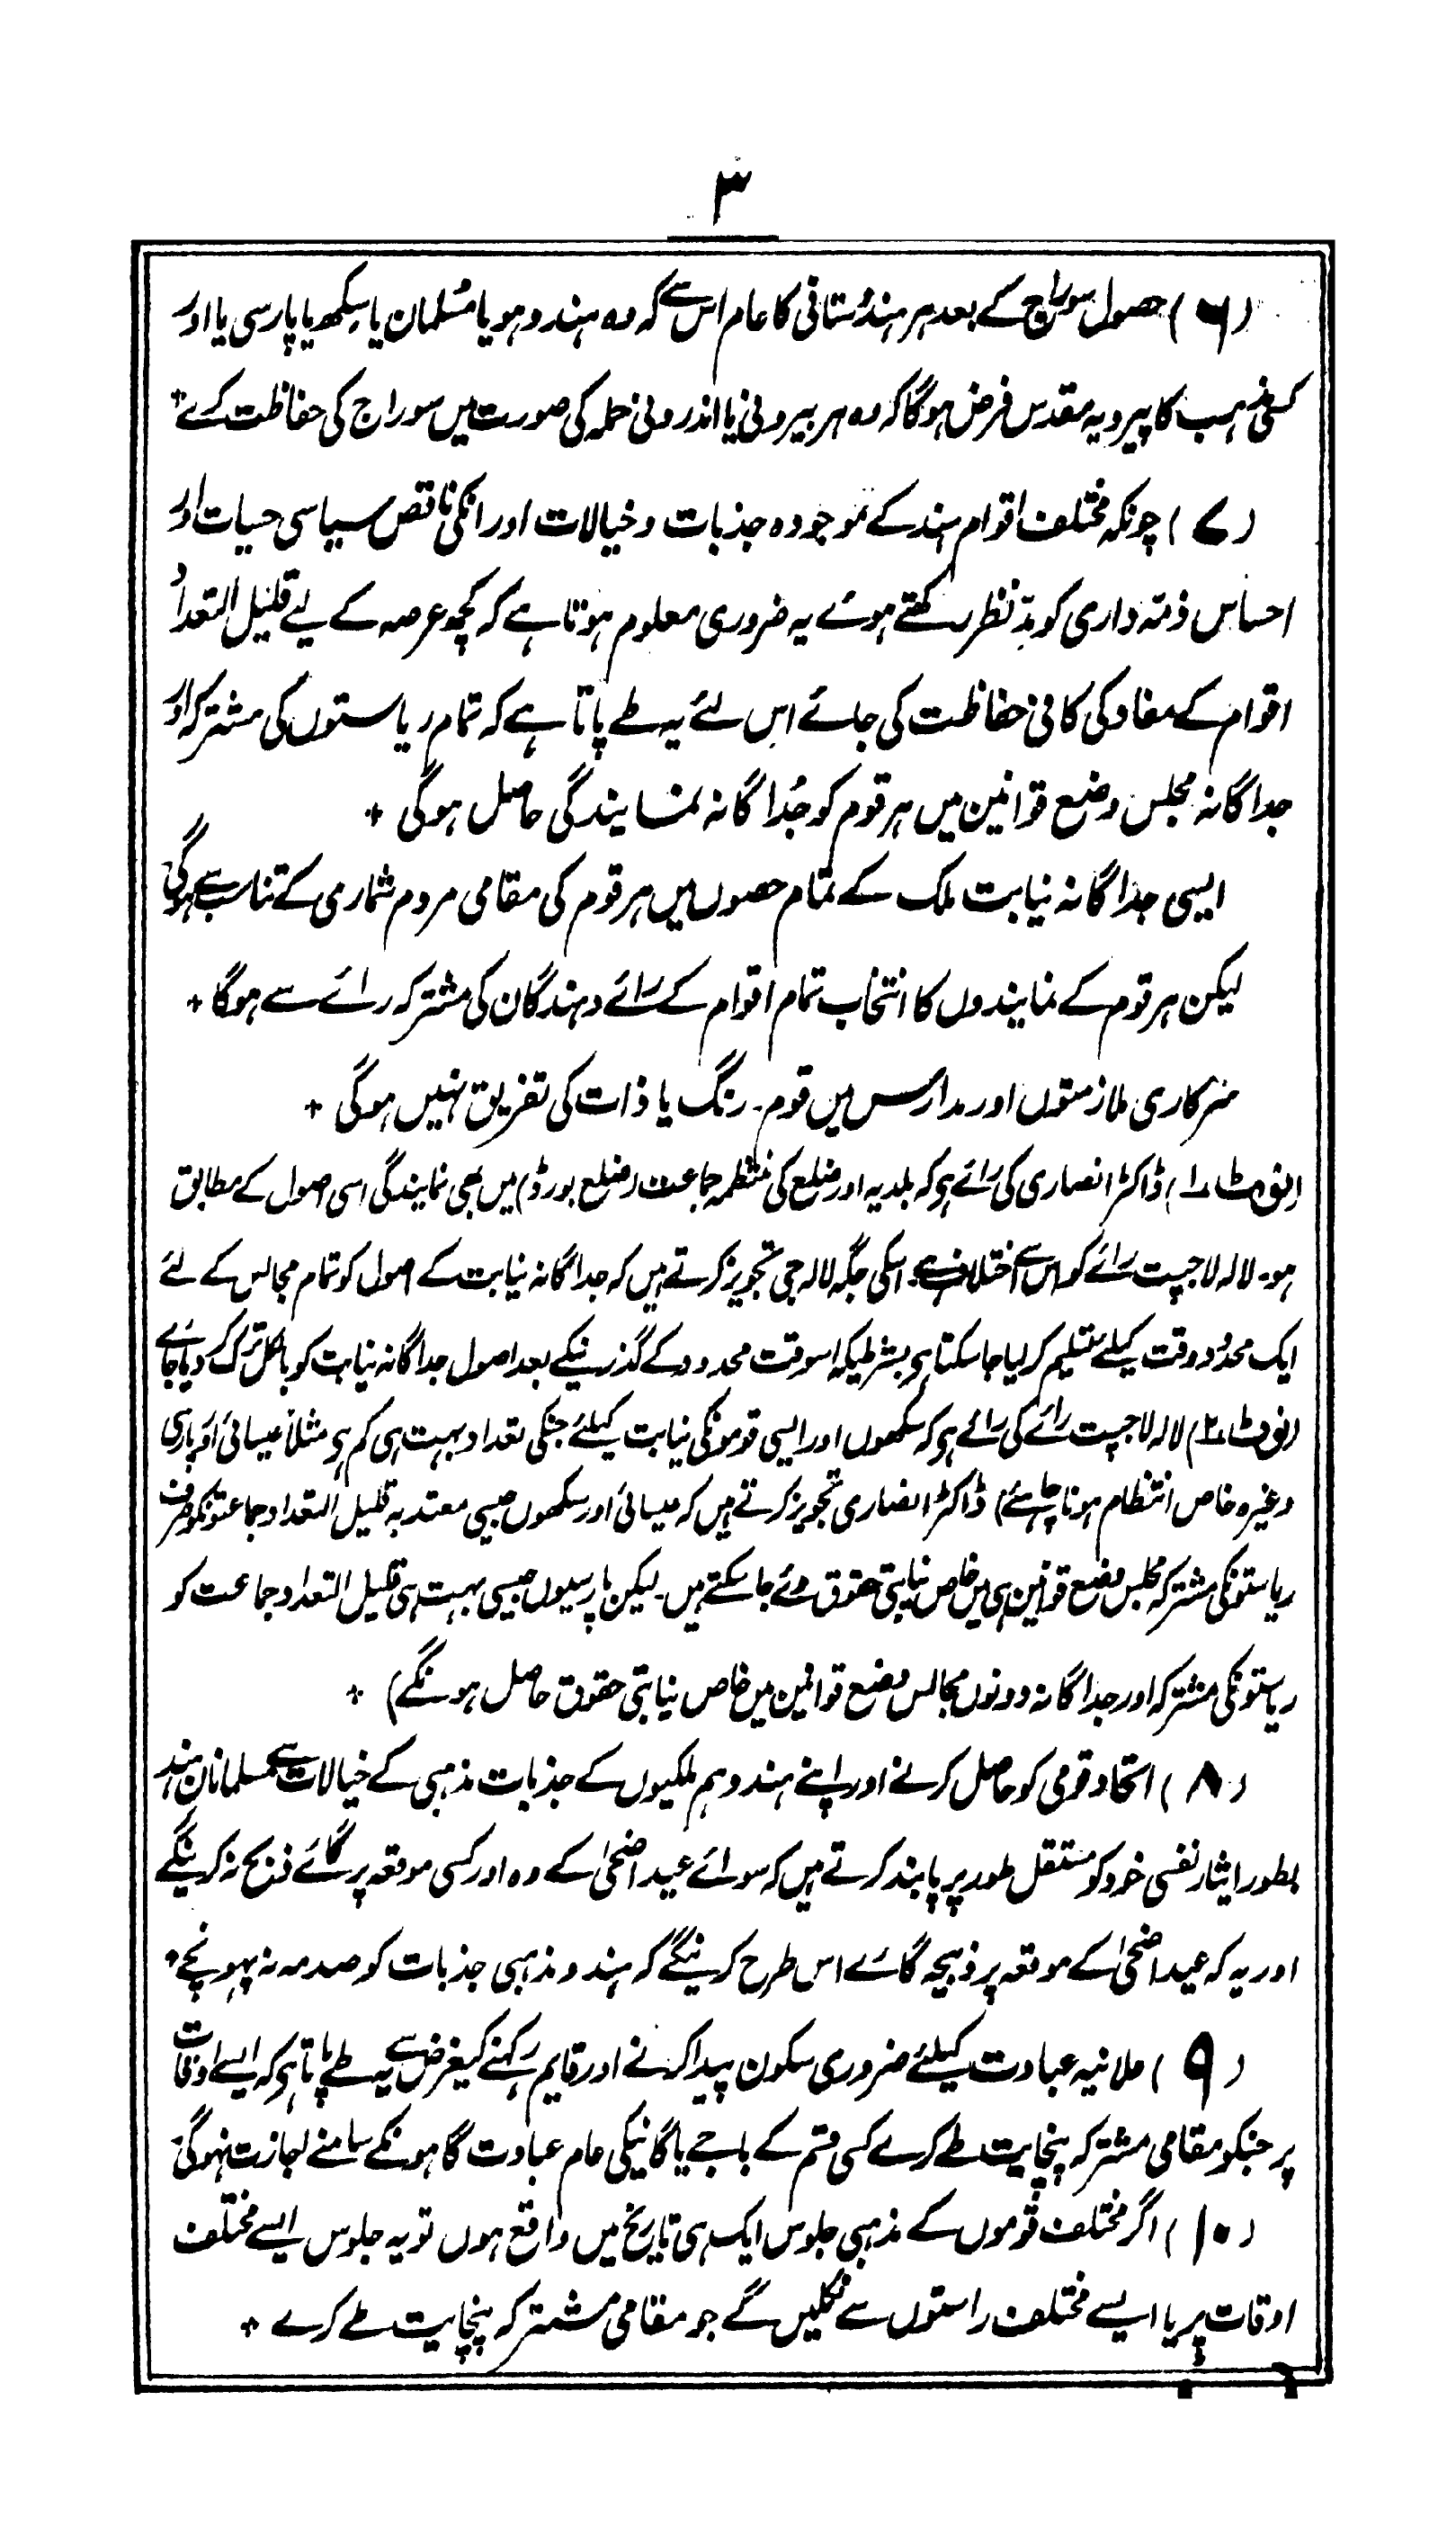 ۳
(۶) حصول سوراج کے بعد ہر ہندُستانی کا عام اس سے کہ وہ ہندو ہو یا مُسلمان یا سِکھ یا پارسی یا اور
کسی مذہب کا پیرو یہ مقدس فرض ہوگا کہ وہ ہر بیرونی یا اندرونی حملہ کی صورت میں سوراج کی حفاظت کرے +
(۷) چونکہ مختلف اقوام ہند کے موجودہ جذبات و خیالات اور انکی ناقص سیاسی حسیات اور
احساس ذمّہ داری کو مدِّ نظر رکھتے ہوئے یہ ضروری معلوم ہوتا ہے کہ کچھ عرصہ کے لیے قلیل التعداد
اقوام کے مفاد کی کافی حفاظت کی جائے اس لئے یہ طے پاتا ہے کہ تمام ریاستوں کی مشترکہ اور
جداگانہ مجلس وضع قوانین میں ہر قوم کو جُداگانہ نمایندگی حاصل ہوگی +
ایسی جداگانہ نیابت ملک کے تمام حصوں میں ہر قوم کی مقامی مردم شماری کے تناسب سے ہوگی
لیکن ہر قوم کے نمایندوں کا انتخاب تمام اقوام کے رائے دہندگان کی مشترکہ رائے سے ہوگا +
سرکاری ملازمتوں اور مدارس میں قوم۔ رنگ یا ذات کی تفریق نہیں ہوگی +
(نوٹ ۱) ڈاکٹر انصاری کی رائے ہی کہ بلدیہ اور ضلع کی منتظمہ جماعت (ضلع بورڈ) میں بھی نمایندگی اسی اصول کے مطابق
ہو۔ لالہ لاجپت رائے کو اس سے اختلاف ہے۔ اسکی جگہ لالہ جی تجویز کرتے ہیں کہ جداگانہ نیابت کے اصول کو تمام مجالس کے لئے
ایک محدُود وقت کیلئے تسلیم کر لیا جا سکتا ہی بشرطیکہ اسوقت محدود کے گذرنیکے بعد اصول جداگانہ نیابت کو بالکل ترک کر دیا جائے
(نوٹ ۲) لالہ لاجپت رائے کی رائے ہی کہ سکھوں اور ایسی قومونکی نیابت کیلئے جنکی تعداد بہت ہی کم ہی مثلاً عیسائی اور پارسی
وغیرہ خاص انتظام ہونا چاہئے) ڈاکٹر انصاری تجویز کرتے ہیں کہ عیسائی اور سکھوں جیسی معتدبہ قلیل التعداد جماعتونکو صرف
ریاستونکی مشترکہ مجلس وضع قوانین ہی میں خاص نیابتی حقوق دئے جا سکتے ہیں۔ لیکن پارسیوں جیسی بہت ہی قلیل التعداد جماعت کو
ریاستونکی مشترکہ اور جداگانہ دونوں مجالس وضع قوانین میں خاص نیابتی حقوق حاصل ہونگے) +
(۸) اتحاد قومی کو حاصل کرنے اور اپنے ہندو ہم ملکیوں کے جذبات مذہبی کے خیالات سے مسلمانان ہند
بطور ایثار نفسی خود کو مستقل طور پر پابند کرتے ہیں کہ سوائے عید اضحیٰ کے وہ اور کسی موقعہ پر گائے ذبح نہ کرینگے
اور یہ کہ عید اضحیٰ کے موقعہ پر ذبیحہ گائے اس طرح کرینگے کہ ہندو مذہبی جذبات کو صدمہ نہ پہونچے +
(۹) علانیہ عبادت کیلئے ضروری سکون پیدا کرنے اور قایم رکھنے کیغرض سے یہ طے پاتا ہی کہ ایسے اوقات
پر جنکو مقامی مشترکہ پنچایت طے کرے کسی قسم کے باجے یا گانیکی عام عبادت گاہونکے سامنے اجازت نہوگی
(۱۰) اگر مختلف قوموں کے مذہبی جلوس ایک ہی تاریخ میں واقع ہوں تو یہ جلوس ایسے مختلف
اوقات پر یا ایسے مختلف راستوں سے نکلیں گے جو مقامی مشترکہ پنچایت طے کرے +